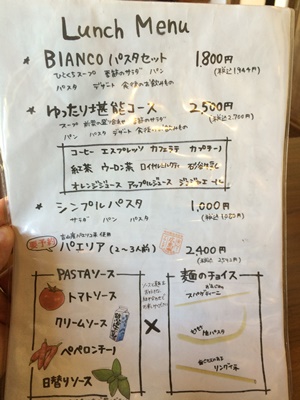 Lunch Menu
BIANCO パスタセット 1,800円
ひとくちスープ 季節のサラダ パン (税込1944円)
パスタ デザート 食後のお飲みもの
ゆったり堪能コース 2,500円
スープ サラダ (税込2,700円)
パン パスタ デザート 食後のお飲みもの
コーヒー エスプレッソ カフェラテ カプチーノ
紅茶 ウーロン茶 ロイヤルミルクティ
オレンジジュース アップルジュース ジンジャーエール
シンプルパスタ 1,000円
サラダ パン パスタ
パエリア (2〜3人前) 2,400円
PASTAソース
トマトソース
クリームソース
ペペロンチーノ
日替りソース
×
麺のチョイス
スパゲティーニ
生パスタ
リングイネ